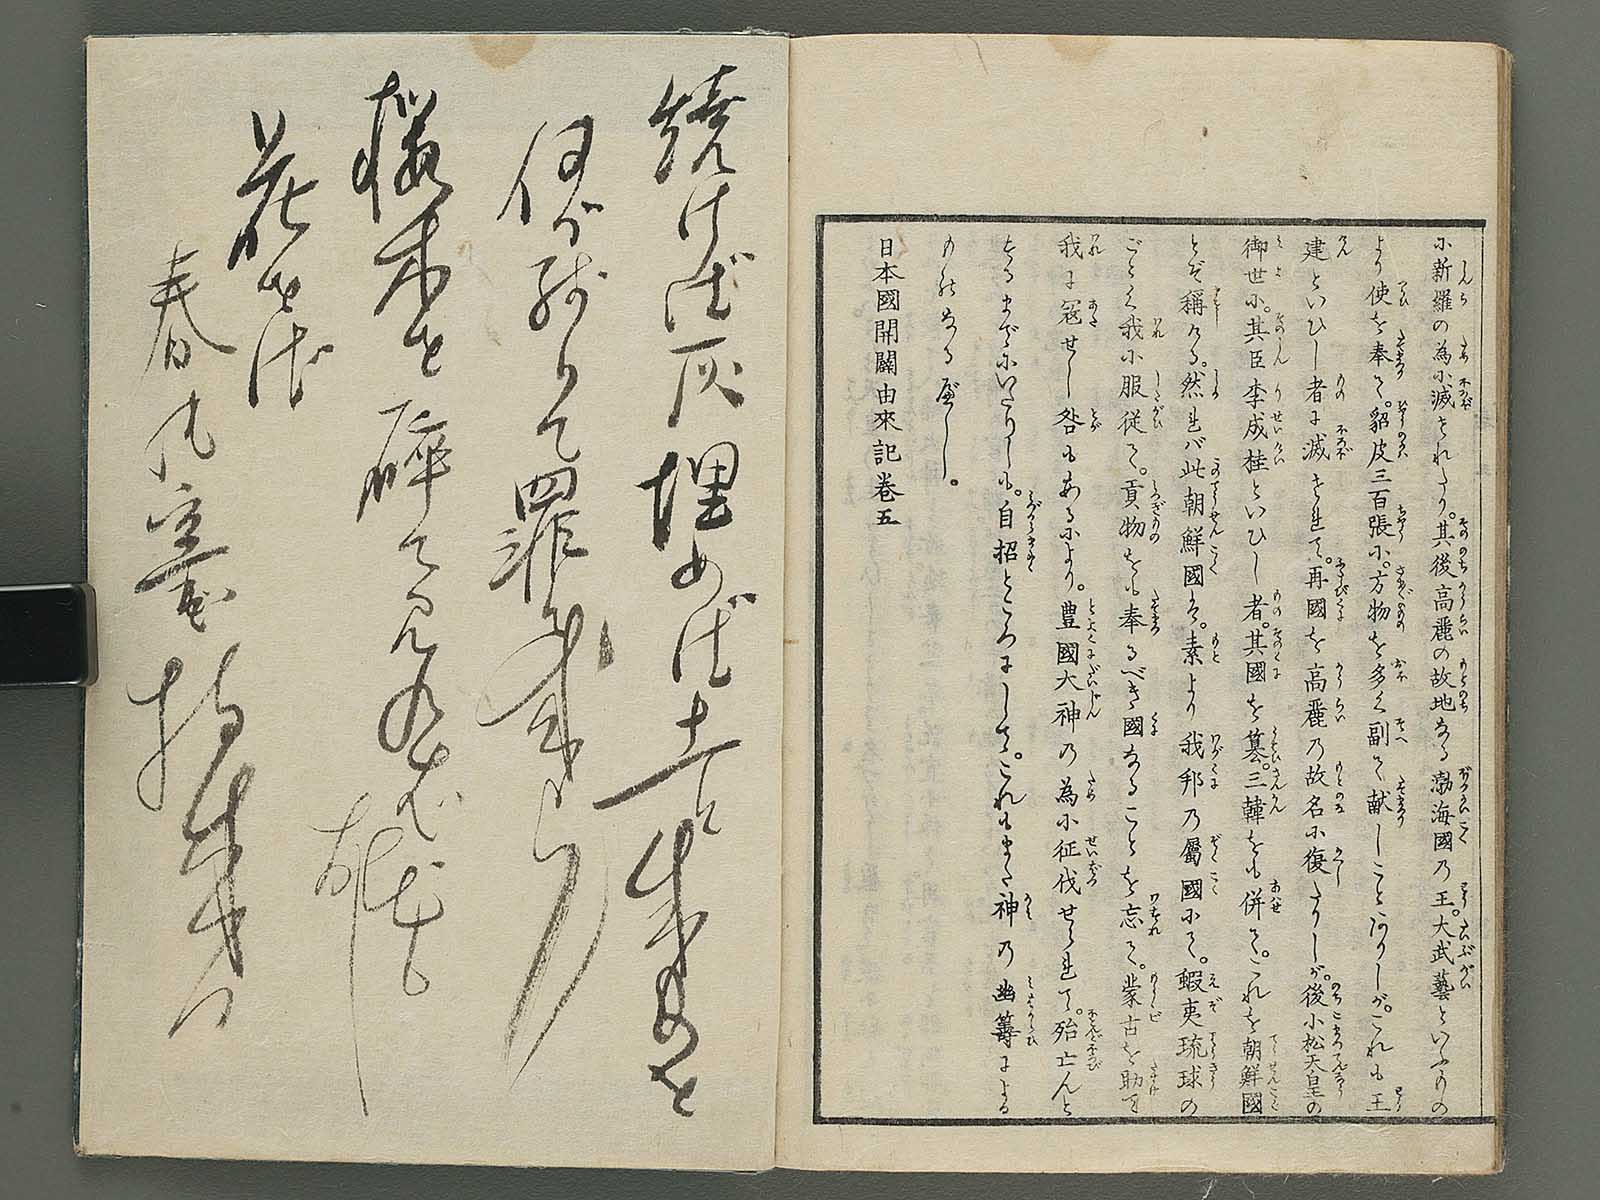 に新羅の為に滅されたり。其後高麗の故地なる渤海國の王。大武藝といふもの
より使を奉て。貂皮三百張に。方物を多く副て献しことありしが。これも王
建といひし者に滅されて。再國を高麗の故名に復たりしが。後小松天皇の
御世に。其臣李成桂といひし者。其國を簒。三韓をも併て。これを朝鮮國
とぞ稱ける。然れバ此朝鮮國は。素より我邦の屬國にて。蝦夷琉球の
ごとく我に服従て。貢物をも奉るべき國なることを忘て。蒙古を助て
我に寇せし咎もあるにより。豊國大神の為に征伐せられて。殆亡んと
するまでにいたりしも。自招ところにして。これもまた神の幽籌による
ものなるべし。
日本國開闢由來記巻五
焼けば灰埋めば土と成ものを
何が残りて罪
桜木を砕て見れば
花をば
春